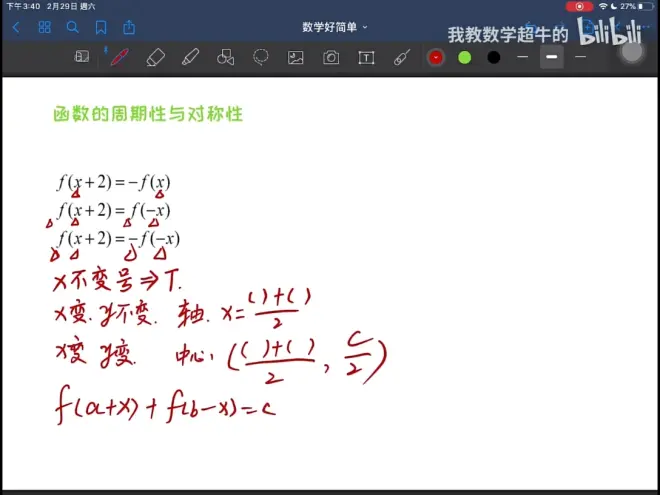 下午3:40 2月29日 週六
27%
数学好简单
我教数学超牛的 bilibili
函数的周期性与对称性
f(x+2)=-f(x)
f(x+2)=f(-x)
f(x+2)=-f(-x)
x不变号⇒T.
x变.y不变. 轴.x=( )+( )/2
x变 y变. 中心,(( )+( )/2, c/2)
f(a+x)+f(b-x)=c